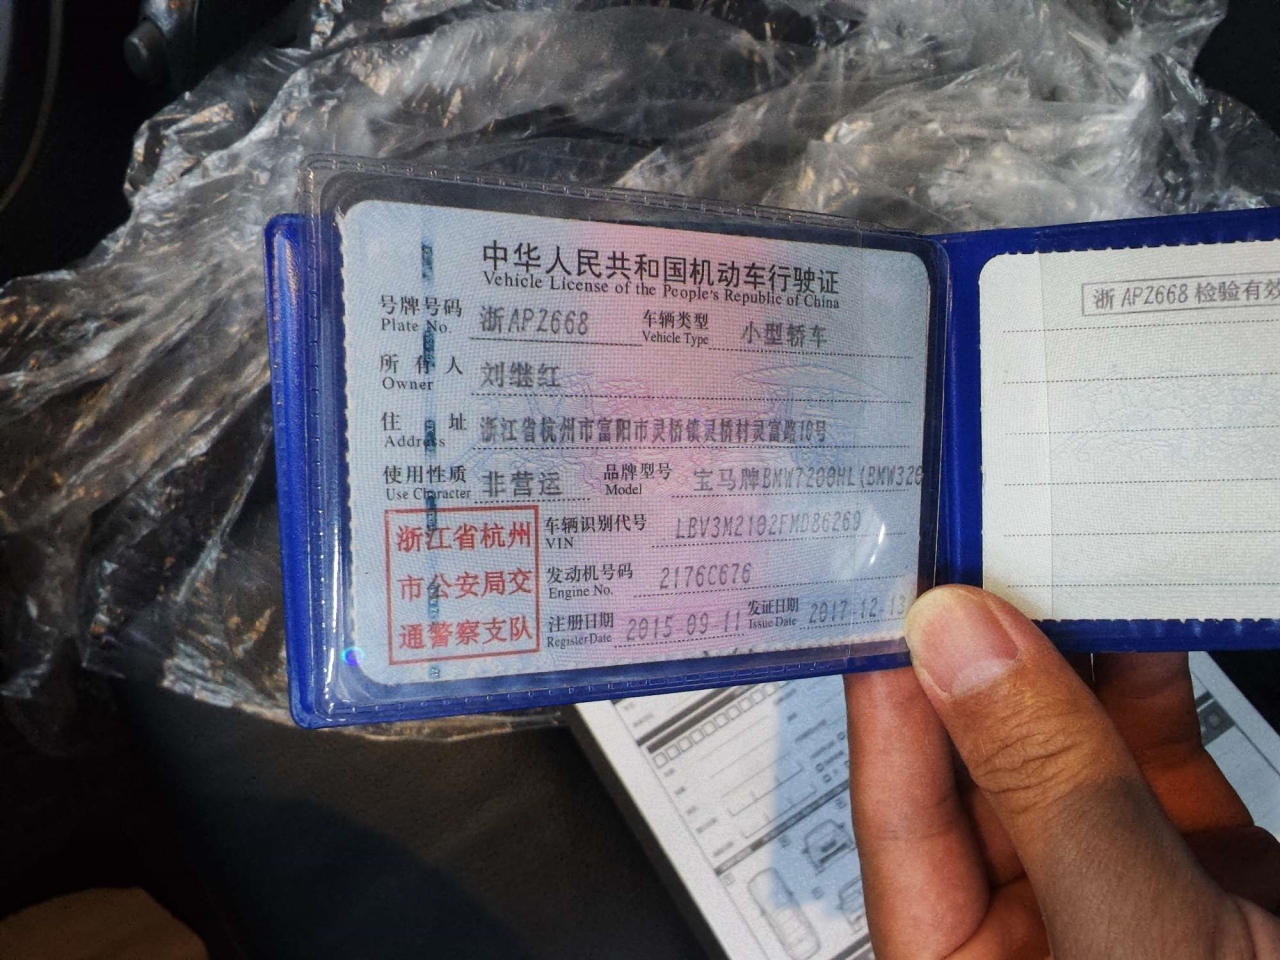 中华人民共和国机动车行驶证
Vehicle License of the People's Republic of China
号牌号码 浙APZ668 车辆类型 小型轿车
Plate No. Vehicle Type
所有人 刘继红
Owner
住址 浙江省杭州市富阳市灵桥镇灵桥村灵富路18号
Address
使用性质 非营运 品牌型号 宝马牌BMW7200HL(BMW320
Use Character Model
浙江省杭州
市公安局交
通警察支队
车辆识别代号 LBV3M2102FMD86269
VIN
发动机号码 2176C676
Engine No.
注册日期 2015-09-11 发证日期 2017-12-13
Register Date Issue Date
浙APZ668 检验有效